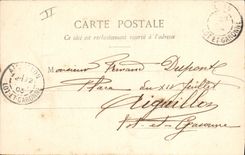 CARTE POSTALE
Ce côté est exclusivement réservé à l'adresse
Monsieur Fernand Dupont
Place du XIV Juillet
Aiguillon
Lot-et-Garonne
LOT ET GARONNE
LOT ET GARONNE